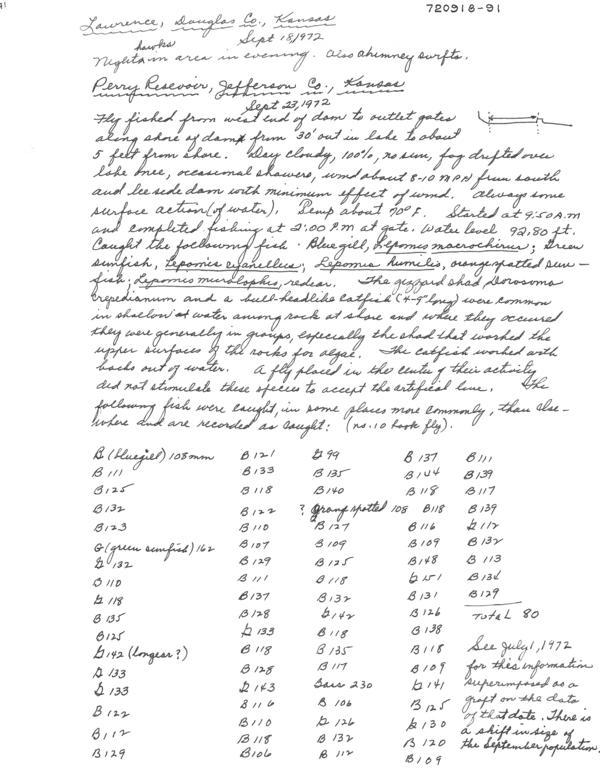 720918-91
Lawrence, Douglas Co., Kansas
Sept 18, 1972
Nighthawks in area in evening. Also chimney swifts.
Perry Resevoir, Jefferson Co., Kansas
Sept 23, 1972
Fly fished from west end of dam to outlet gates
along shore of dam from 30' out in lake to about
5 feet from shore. Day cloudy, 100%, no sun, fog drifted over
lake once, occasional showers, wind about 8-10 MPH from south
and lee side dam with minimum effect of wind. Always some
surface action (of water). Temp about 70° F. Started at 9:50 A.M
and completed fishing at 2:00 P.M at gate. Water level 92.80 ft.
Caught the following fish - Bluegill, Lepomis macrochirus; Green
sunfish, Lepomis cyanellus; Lepomis humilis, orangespotted sun-
fish; Lepomis microlophis, redear. The gizzard shad Dorosoma
cepedianum and a bull-headlike catfish (4-9" long) were common
in shallow water among rock at shore and where they occured
they were generally in groups, especially the shad that worked the
upper surfaces of the rocks for algae. The catfish worked with
backs out of water. A fly placed in the center of their activity
did not stimulate these species to accept the artifical lure. The
following fish were caught, in some places more commonly, than else-
where and are recorded as caught: (no. 10 hook fly).
B (bluegill) 108mm
B 111
B 125
B 132
B 123
G (green sunfish) 162
G 132
B 110
G 118
B 135
B 125
G 142 (longear?)
G 133
G 133
B 122
B 112
B 129
B 121
B 133
B 118
B 122
B 110
B 107
B 129
B 111
B 137
B 128
G 133
B 118
B 128
G 143
B 116
B 110
B 118
B 106
G 99
B 135
B 140
? Orang spotted 108
B 127
B 109
B 125
B 118
B 132
G 142
B 118
B 135
B 117
Bass 230
B 106
G 126
B 132
B 112
B 137
B 144
B 118
B 118
B 116
B 109
B 148
G 151
B 131
B 126
B 138
B 118
B 109
G 141
B 125
G 130
B 120
B 109
B 111
B 139
B 117
B 139
G 112
B 132
B 113
B 134
B 129
Total 80
See July 1, 1972
for this information
superimposed as a
graft on the data
of that date. There is
a shift in size of
the September population.